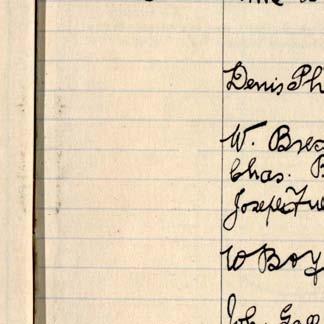 Denis Ph
W. Bres
Chas. B
Joseph Fu
W Boy
John Gall